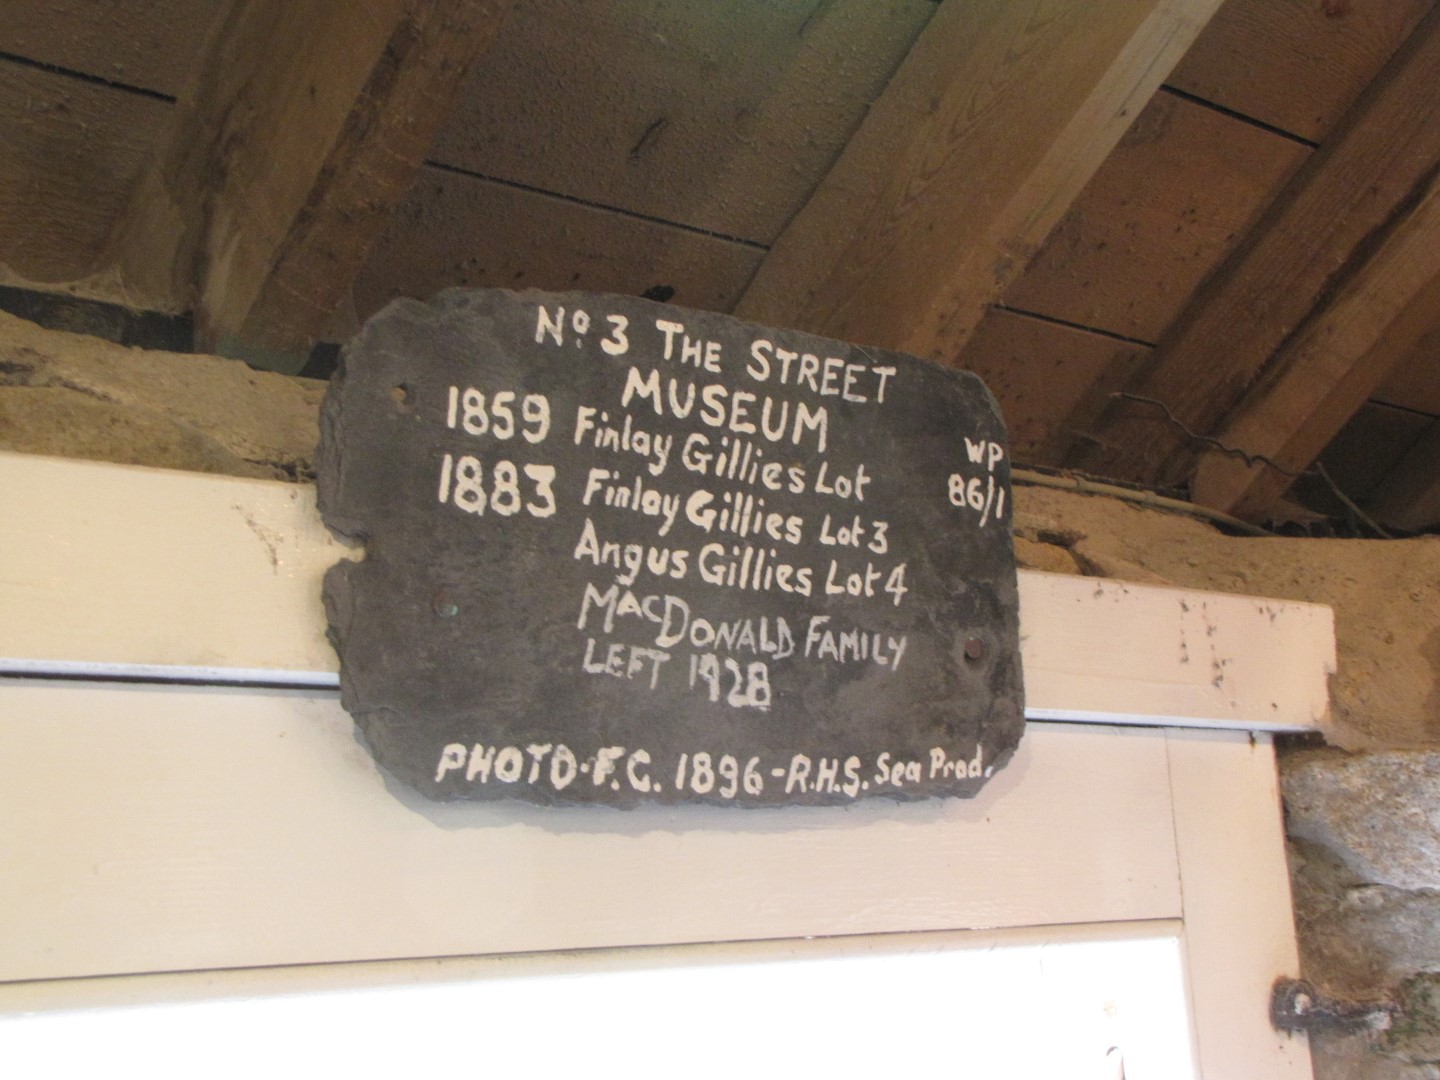 Nº 3 THE STREET
MUSEUM
1859 Finlay Gillies Lot
WP
86/1
1883 Finlay Gillies Lot 3
Angus Gillies Lot 4
MACDONALD FAMILY
LEFT 1928
PHOTO-F.G. 1896-R.H.S. Sea Prod.